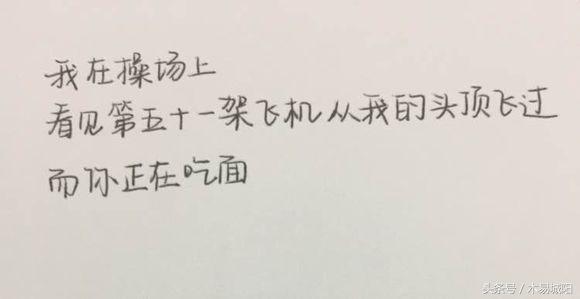 我在操场上
看见第五十一架飞机从我的头顶飞过
而你正在吃面
头条号/木易城阳